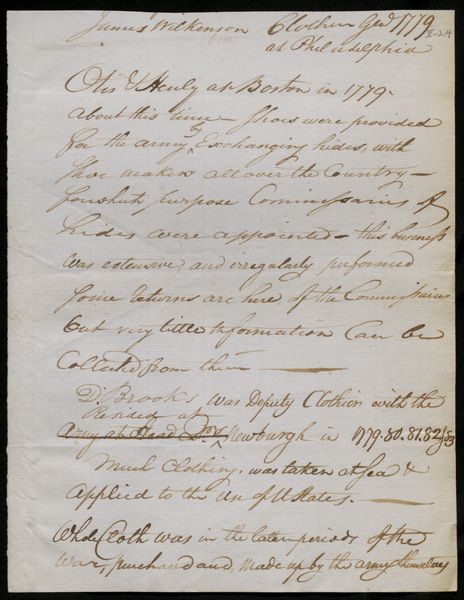 James Wilkinson Clothier Genl 1779
V-24
at Philadelphia
Otis & Henly at Boston in 1779.
About this time – Shoes were provided
for the army by Exchanging hides, with
Shoe makers all over the Country –
for which purpose Commissaries of
hides were appointed – this business
was extensive, and irregularly performed
Some returns are here of the Commissaries
but very little Information Can be
Collected from them
D. Brooks was Deputy Clothier with the
Resided at
Army at Head Qrs Newburgh in 1779.80.81.82 & 83
Much Clothing, was taken at Sea &
Applied to the Use of U States. –
Whole Cloth was in the later periods of the
War, purchased and, made up by the army themselves